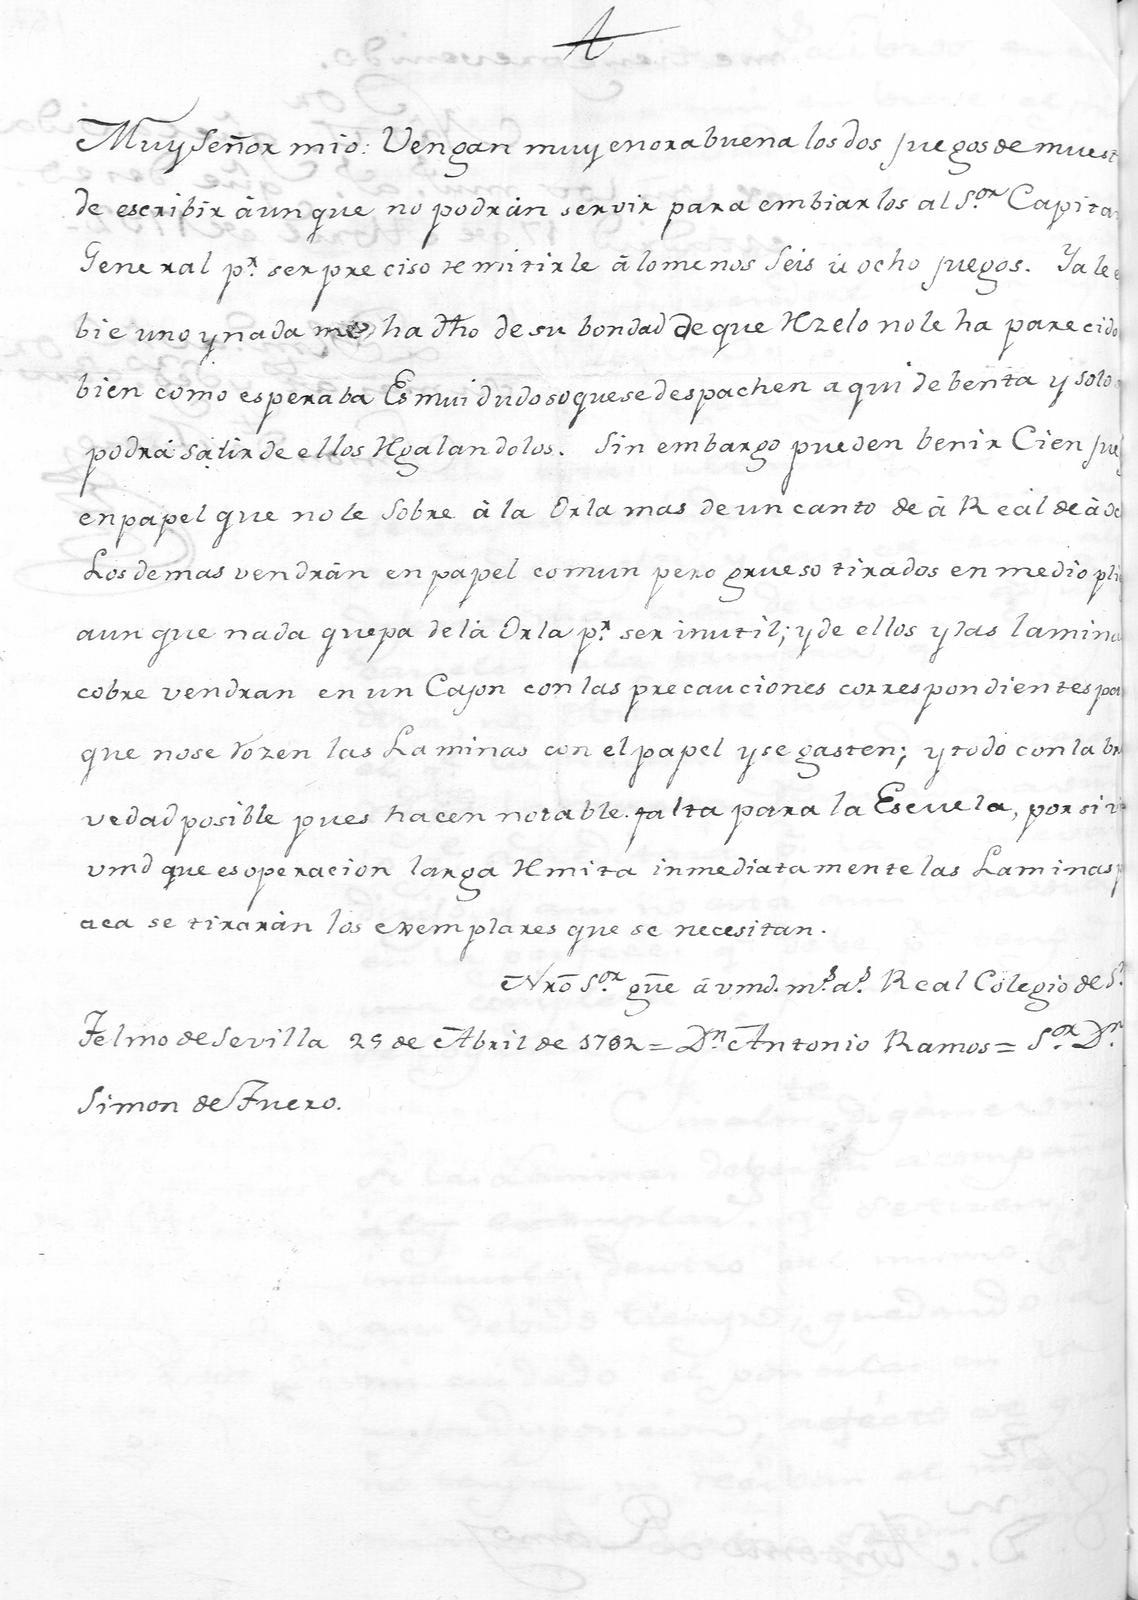 A
Muy Señor mio: Vengan muy enorabuena los dos juegos de muest
de escribir áunque no podrán servir para embiarlos al S.or Capita
General p.r ser preciso remitirle á lo menos seis ú ocho juegos. Ya le e
bie uno y nada me ha dho de su bondad de que Rzelo no le ha parecido
bien como esperaba Es mui dudoso que se despachen aqui de benta y solo
podrá salir de ellos Rgalandolos. Sin embargo pueden benir Cien jue
en papel que no le sobre á la Orla mas de un canto de á Real de á oc
Los demas vendrán en papel comun pero grueso tirados en medio pli
aunque nada quepa de la Orla p.r ser inutil; y de ellos y las lamina
cobre vendran en un Cajon con las precauciones correspondientes pa
que no se rozen las Laminas con el papel y se gasten; y todo con la br
vedad posible pues hacen notable falta para la Escuela, por si v
vmd que es operacion larga Rmita inmediatamente las Laminas
aca se tirarán los exemplares que se necesitan.
Nrō S.or gūe á vmd. m.s a.s Real Colegio de S.
Telmo de Sevilla 29 de Abril de 1782 = D.n Antonio Ramos = S.or D.n
Simon de Fuero.